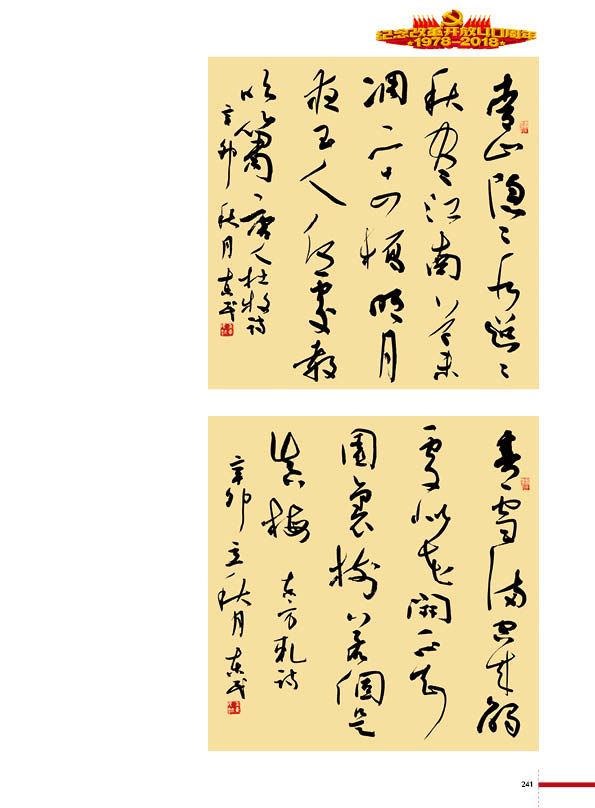 纪念改革开放40周年
1978-2018
青山隐〻水迢〻
秋尽江南草未
凋二十四橋明月
夜玉人何處教
吹簫 唐人杜牧诗
辛卯秋月
春雪满空来觸
處似花開不知
園裏樹若個是
真梅 东方虬诗
辛卯立秋月
241